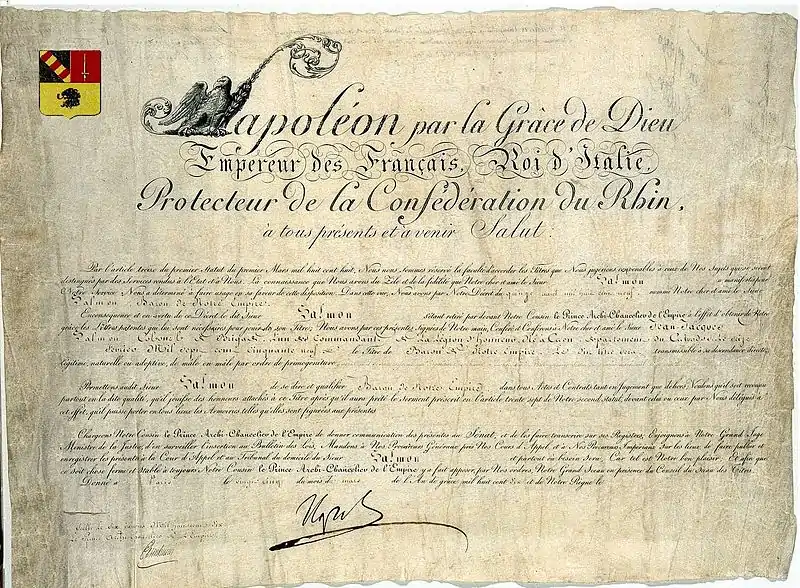 Napoléon par la Grâce de Dieu
Empereur des Français, Roi d'Italie,
Protecteur de la Confédération du Rhin,
à tous présents et à venir Salut:
Par l'article treize du premier Statut du premier Mars mil huit cent huit, Nous nous sommes réservé la faculté d'accorder les Titres que Nous jugerions convenables à ceux de Nos Sujets qui se seront
distingués par des Services rendus à l'Etat et à Nous. La connaissance que Nous avons du Zèle et de la fidélité que Notre cher et amé le Sieur Salmon a manifestés pour
Notre Service, Nous a déterminé à faire usage en sa faveur de cette disposition. Dans cette vue, Nous avons par Notre Décret du quinze août mil huit cent neuf, nommé Notre cher et amé le Sieur
Salmon Baron de Notre Empire.
En conséquence et en vertu de ce Décret le dit Sieur Salmon s'étant retiré par devant Notre Cousin le Prince Archi-Chancelier de l'Empire à l'effet d'obtenir de Notre
grâce les Lettres patentes qui lui sont nécessaires pour jouir de son Titre; Nous avons par ces présentes signées de Notre main, Conféré et Conférons à Notre cher et amé le Sieur Jean Jacques
Salmon Colonel Commandant la Légion d'honneur Né à Caen département du Calvados le seize
Février Mil Sept cent Cinquante neuf le Titre de Baron Notre Empire. Le dit titre sera transmissible à sa descendance directe,
légitime, naturelle ou adoptive, de mâle en mâle par ordre de primogéniture
Permettons audit Sieur Salmon de se dire et qualifier Baron de Notre Empire dans tous Actes et Contrats tant en Jugement que dehors, Voulons qu'il soit reconnu
partout en la dite qualité, qu'il jouisse des honneurs attachés à ce Titre après qu'il aura prêté le Serment prescrit en l'article trente sept de Notre second statut, devant celui ou ceux par Nous délégués à
cet effet, qu'il puisse porter en tous lieux les Armoiries telles qu'elles sont figurées aux présentes
Chargeons Notre Cousin le Prince Archi-Chancelier de l'Empire de donner communication des présentes au Sénat, et de les faire transcrire sur ses Registres, Enjoignons à Notre Grand Juge
Ministre de la Justice, d'en surveiller l'insertion au Bulletin des Lois, Mandons à Nos Procureurs Généraux près Nos Cours d'Appel et à Nos Procureurs Impériaux sur les lieux, de faire publier et
enregistrer les présentes à la Cour d'Appel et au Tribunal du domicile du Sieur Salmon et partout où besoin sera; Car tel est Notre bon plaisir. Et afin que
soit chose ferme et stable à toujours Notre Cousin le Prince Archi-Chancelier de l'Empire y a fait apposer, par Nos ordres, Notre Grand Sceau en présence du Conseil du Sceau des Titres.
Donné à Paris le vingt cinq du mois de mars de l'An de grâce mil huit cent dix et de Notre Règne le
Nap
Mil huit cent dix
Le Prince Archi-Chancelier de l'Empire